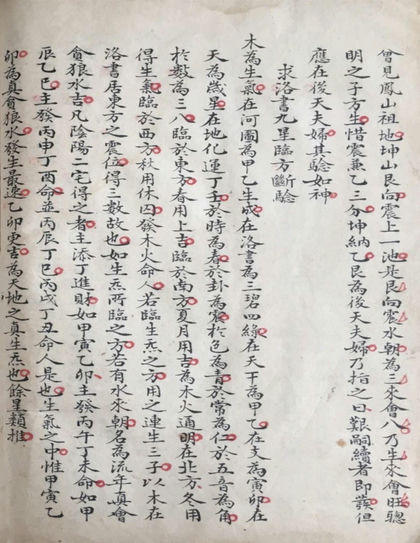 曾見鳳山祖地坤山艮向震上一池是艮向震水朝為三來會八乃生來會旺聰
明之子方生惜震兼乙三分坤納乙艮為後天夫婦乃指之曰艱嗣續者即發但
應在後天夫婦其驗如神
求洛書九星臨方斷驗
木為生氣在河圖為甲乙生成在洛書為三碧四綠在天干為甲乙在支為寅卯在
天為歲星在地化運丁壬於時為春於卦為震於色為青於常為仁於五音為角
於數為三八臨於東方春用上吉臨於南方夏月用吉為木火通明在北方冬用
得生氣臨於西方秋用休囚發木火命人若臨生炁之方用之連生三子以木在
洛書居東方之震位得三數故也如生炁所臨之方若有水來朝名為流年真會
貪狼水吉凡陰陽二宅得之者主添丁進財如甲寅乙卯主發丙午丁未命如甲
辰乙巳主發丙申丁酉命並丙辰丁巳丙戌丁丑命人是也生氣之中惟甲寅乙
卯為真貪狼水發生最速乙卯更吉為天地之真生炁也餘星類推